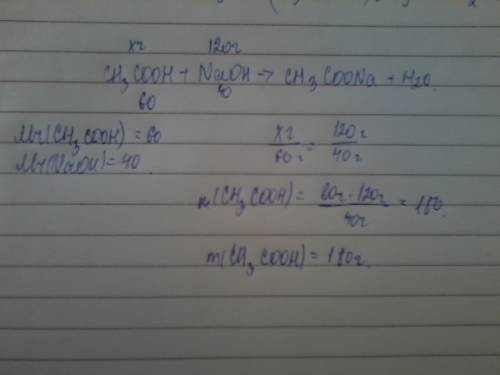 xг 120г
CH₃COOH + NaOH → CH₃COONa + H₂O.
60 40
Mr(CH₃COOH) = 60
Mr(NaOH) = 40.
xг/60г = 120г/40г
m(CH₃COOH) = 60г · 120г/40г = 180.
m(CH₃COOH) = 180г.